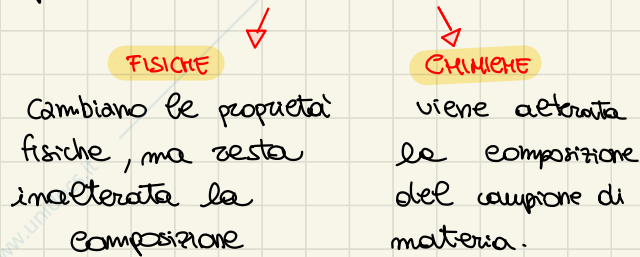 FISICHE
cambiano le proprietà
fisiche, ma resta
inalterata la
composizione
CHIMICHE
viene alterata
la composizione
del campione di
materia.